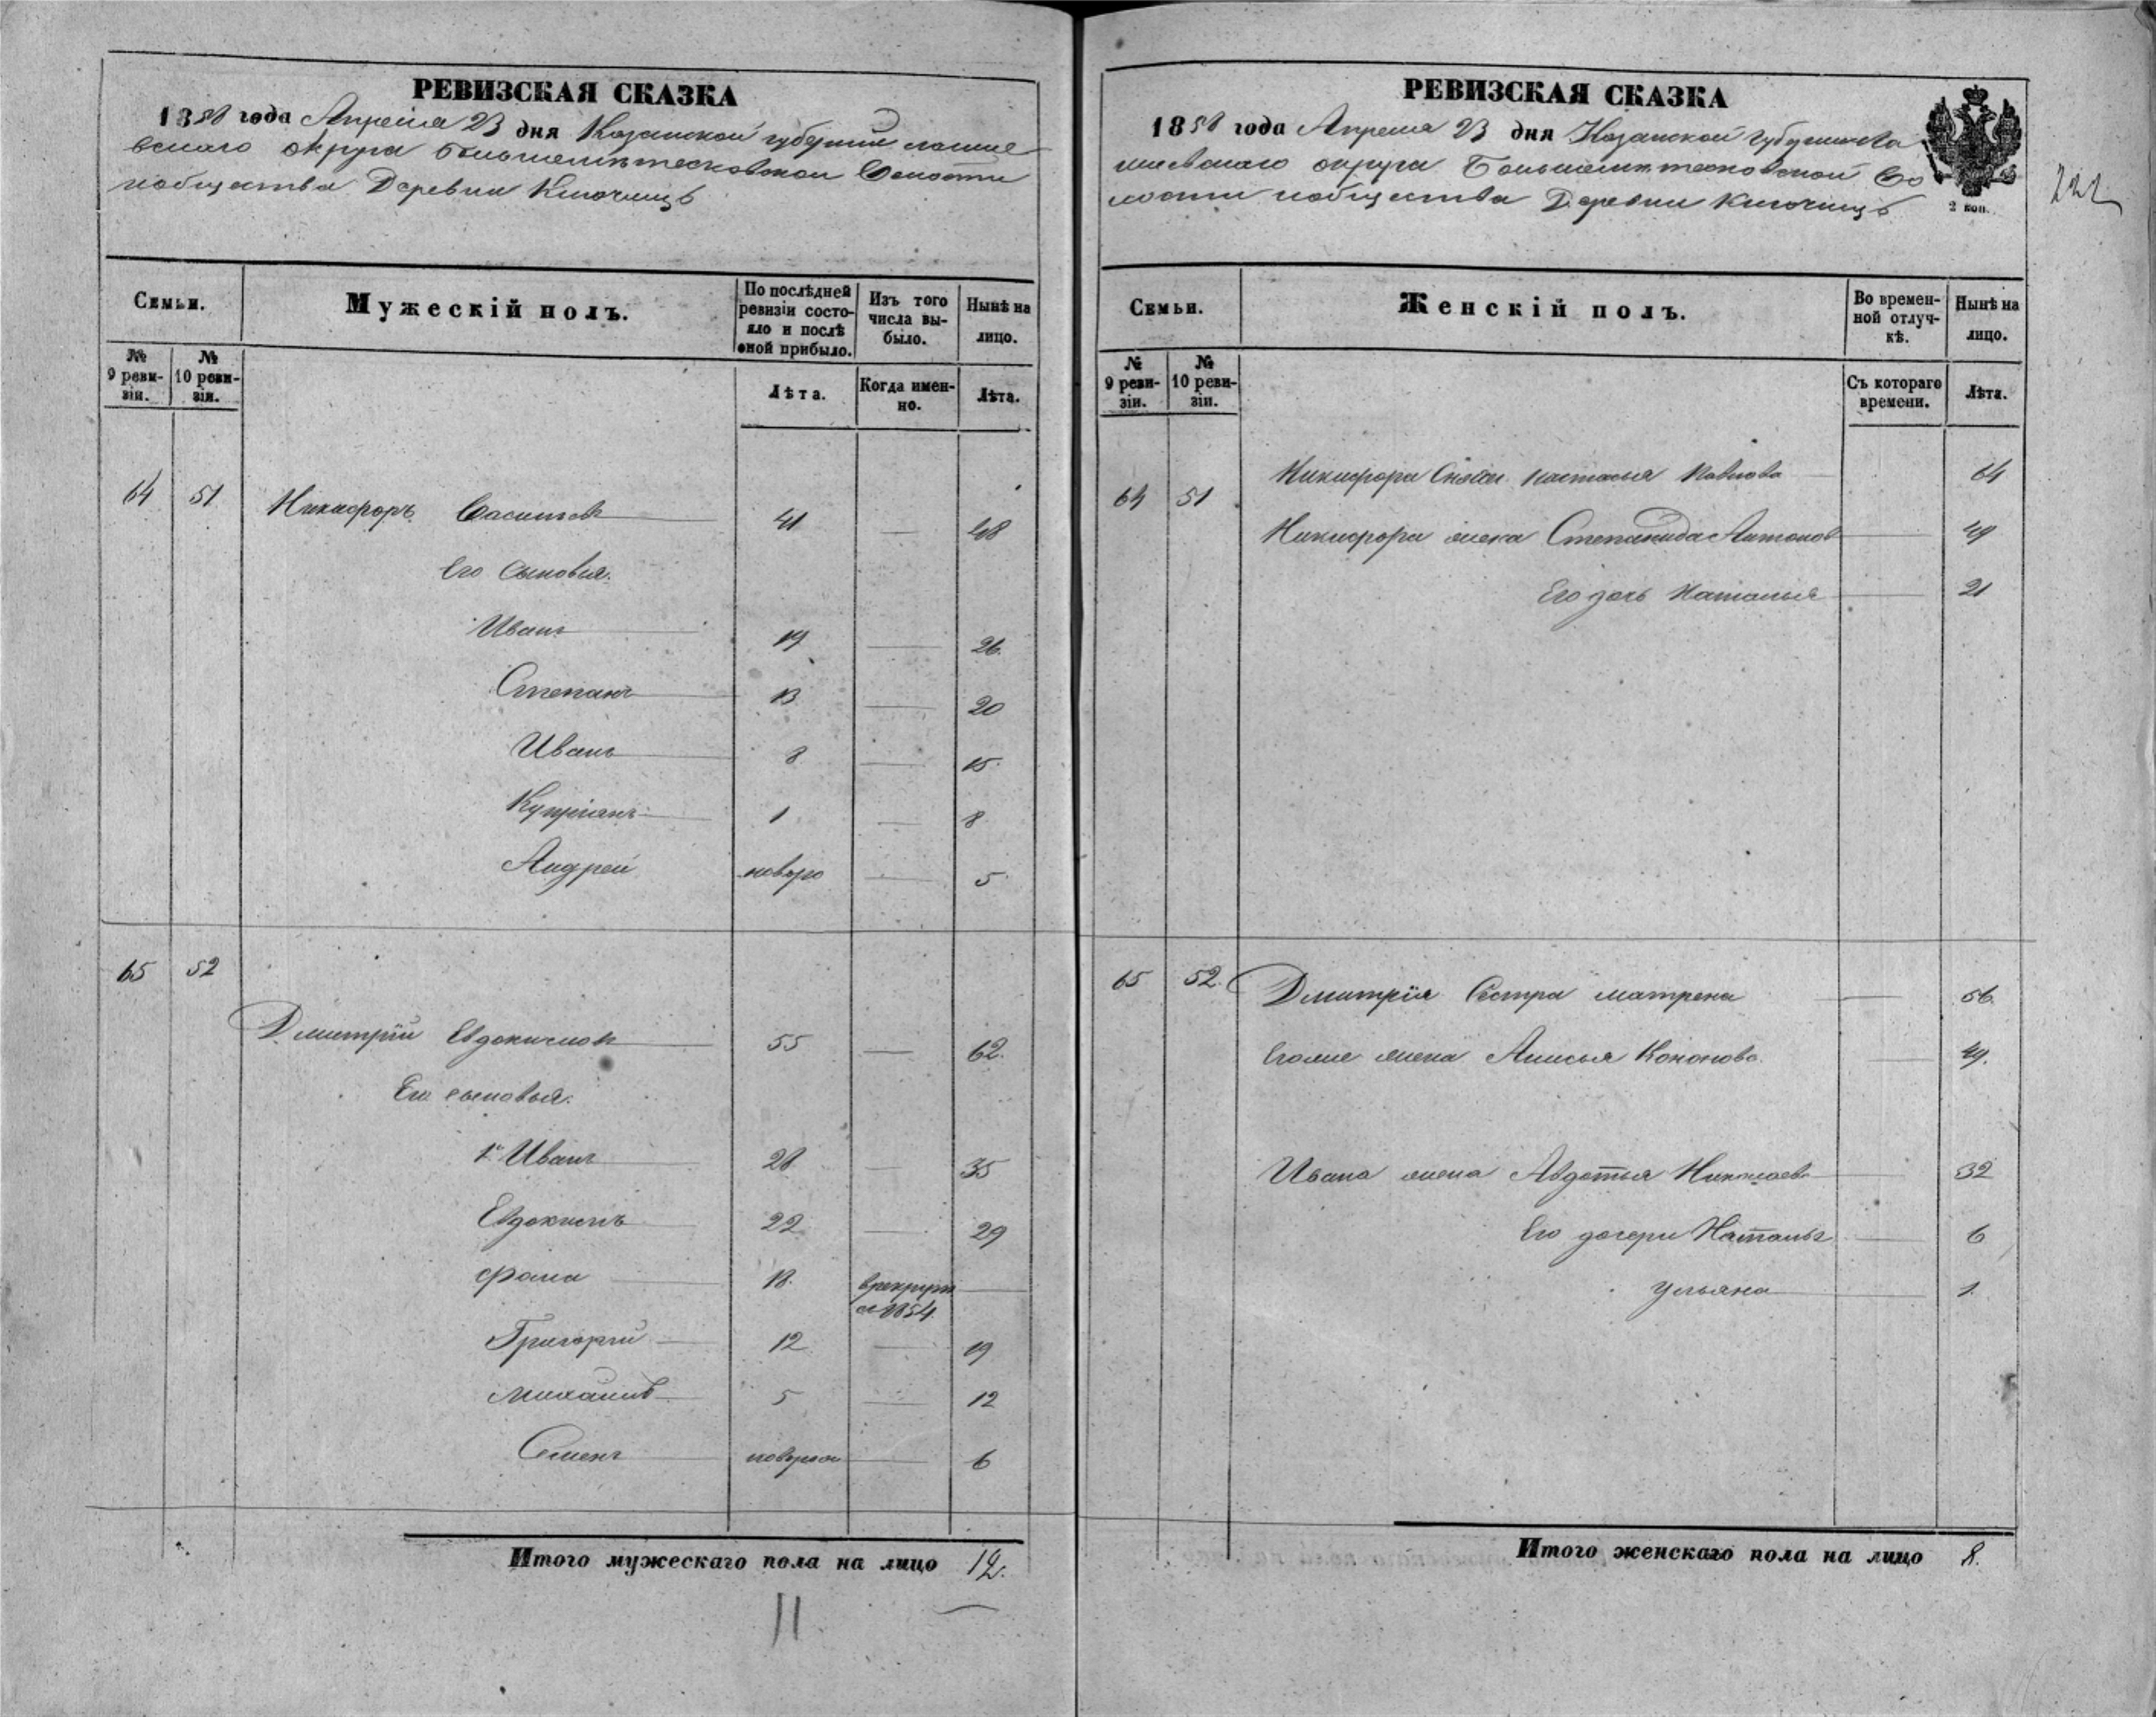 РЕВИЗСКАЯ СКАЗКА
1858 года Апреля 23 дня Казанской губернии лаише
вскаго округа Волости
иобщества Деревни Ключищъ
Семьи.
Мужескій полъ.
По послѣдней ревизіи состояло и послѣ оной прибыло.
Изъ того числа выбыло.
Нынѣ на лицо.
№ 9 ревизіи.
№ 10 ревизіи.
Лѣта.
Когда именно.
Лѣта.
64 51 Никифоръ Васильевъ 41 — 48
Его Сыновья.
Иванъ 19 — 26.
Степанъ 13 — 20
Иванъ 8 — 15.
Купріянъ 1 — 8
Андрей новоро — 5
65 52
Дмитрій Евдокимовъ 55 — 62.
Его сыновья.
1й Иванъ 28 — 35
Евдокимъ 22 — 29
Фома 18. врекруты в 1854
Григорій 12 — 19
Михаилъ 5 — 12
Семенъ — 6
Итого мужескаго пола на лицо 12.
11
РЕВИЗСКАЯ СКАЗКА
1858 года Апреля 23 дня Казанской Губерніи Ла
ишевскаго округа Во
лости иобщества Деревни Ключищъ
2 коп.
222
Семьи.
Женскій полъ.
Во временной отлучкѣ.
Нынѣ на лицо.
№ 9 ревизіи.
№ 10 ревизіи.
Съ котораго времени.
Лѣта.
64 51 Никифора настасья Павлова 64
Никифора жена Степанида Антонов — 49
Его дочь Наталья — 21
65 52. Дмитрія Сестра матрена — 56.
Егоже жена Анисья Кононова — 49.
Ивана жена Авдотья Николаев — 32
Его дочери Наталья — 6
Ульяна — 1.
Итого женскаго пола на лицо 8.